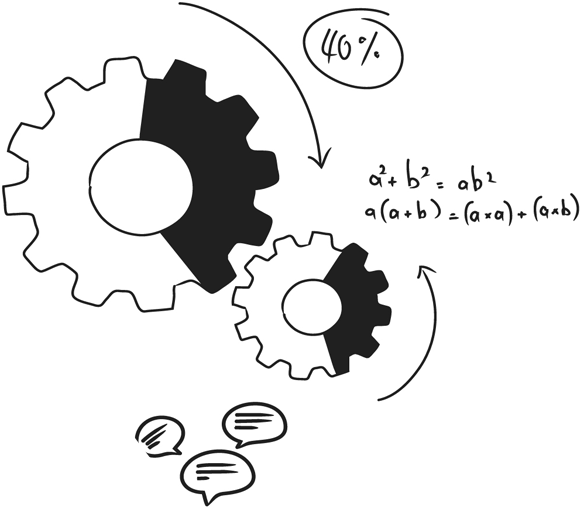 40%
a²+b²=ab²
a(a+b)=(a×a)+(a×b)